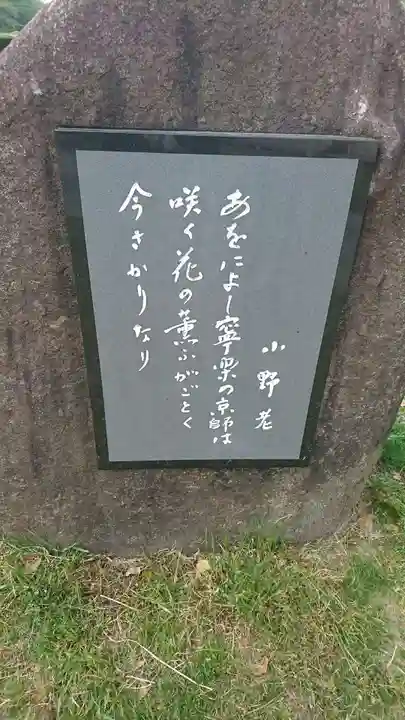 小野老
あをによし寧楽の京師は
咲く花の薫ふがごとく
今さかりなり